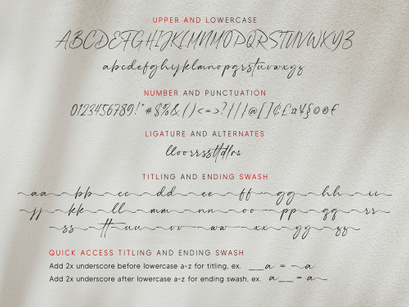 UPPER AND LOWERCASE
ABCDEFGHIJKLMNOPQRSTUVWXYZ
abcdefghijklmnopqrstuvwxyz
NUMBER AND PUNCTUATION
0123456789!"#$%&()<=>?/||@[]
LIGATURE AND ALTERNATES
TITLING AND ENDING SWASH
aa bb cc dd ee ff gg hh ii
jj kk ll mm nn oo pp gg rr
ss tt uu vv ww xx yy zz
QUICK ACCESS TITLING AND ENDING SWASH
Add 2x underscore before lowercase a-z for titling, ex. __a = a
Add 2x underscore after lowercase a-z for ending swash, ex. a__ = a